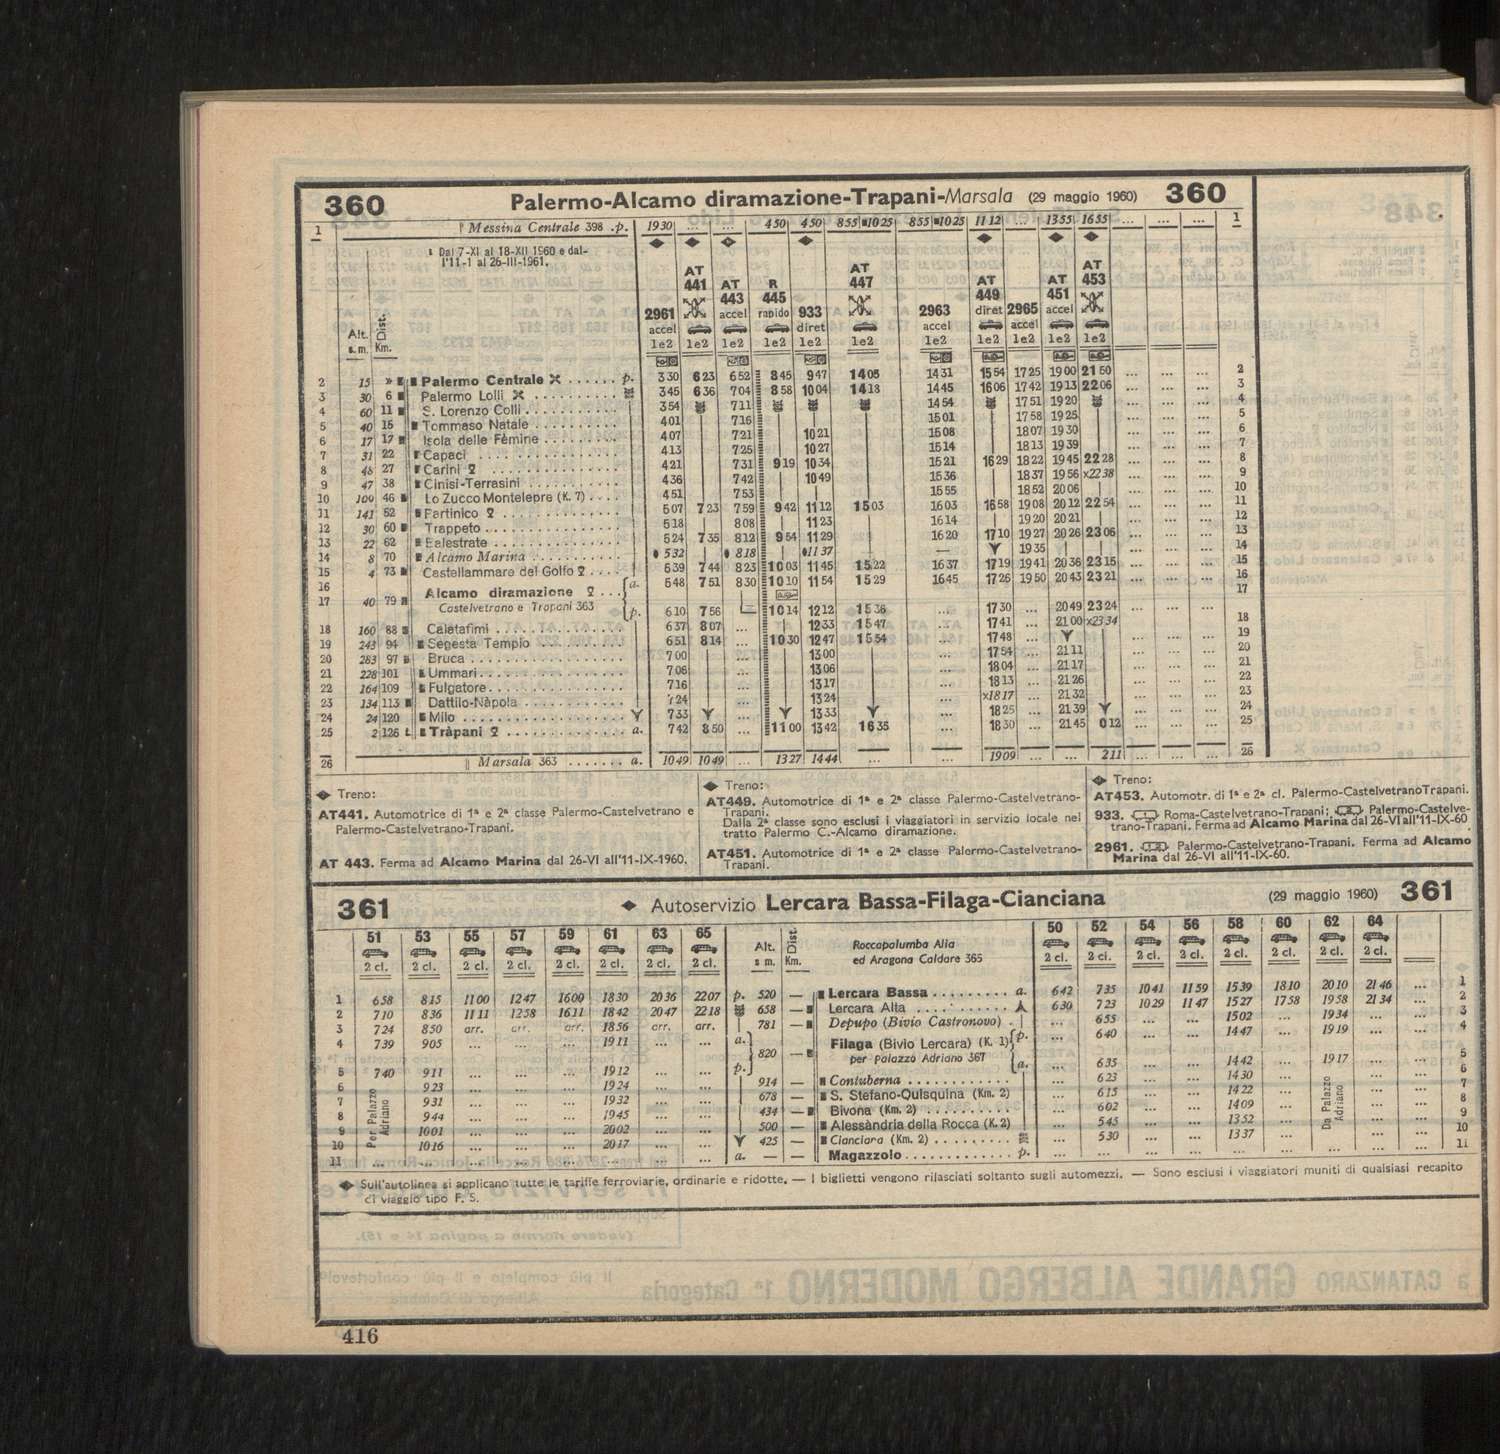 360 Palermo-Alcamo diramazione-Trapani-Marsala (29 maggio 1960) 360
1 Messina Centrale 398 .p. 1930 ... ... 450 450 855 1025 855 1025 1112 ... 1355 1655 ... ... ... 1
Dal 7-XI al 18-XII 1960 e dal-
l'11-1 al 26-III-1961.
AT AT R AT AT AT AT
2961 441 443 445 933 447 2963 449 2965 451 453
accel accel rapido diret accel diret accel accel
1e2 1e2 1e2 1e2 1e2 1e2 1e2 1e2 1e2 1e2 1e2
Alt. s.m. Dist. Km.
2 15 » Palermo Centrale . . . . . . p. 330 623 652 845 947 1405 1431 1554 1725 1900 2150 ... ... ... 2
3 30 6 Palermo Lolli . . . . . . . . . . 345 636 704 858 1004 1418 1445 1606 1742 1913 2206 ... ... ... 3
4 60 11 S. Lorenzo Colli . . . . . . . . . . 354 711 1454 1751 1920 ... ... ... 4
5 40 15 Tommaso Natale . . . . . . . . . 401 716 1501 1758 1925 ... ... ... 5
6 17 17 Isola delle Fèmine . . . . . . . . 407 721 1021 1508 1807 1930 ... ... ... 6
7 31 22 Capaci . . . . . . . . . . . . . . . 413 725 1027 1514 1813 1939 ... ... ... 7
8 46 27 Carini . . . . . . . . . . . . . . 421 731 919 1034 1521 1629 1822 1945 2228 ... ... ... 8
9 47 38 Cinisi-Terrasini . . . . . . . . . . 436 742 1049 1536 1837 1956 x2238 ... ... ... 9
10 100 46 Lo Zucco Montelepre (K. 7) . . . . 451 753 1555 1852 2006 ... ... ... 10
11 141 52 Partinico . . . . . . . . . . . . . 507 723 759 942 1112 1503 1603 1658 1908 2012 2254 ... ... ... 11
12 30 60 Trappeto . . . . . . . . . . . . . . 518 808 1123 1614 1920 2021 ... ... ... 12
13 22 62 Balestrate . . . . . . . . . . . . . 524 735 812 954 1129 1620 1710 1927 2026 2306 ... ... ... 13
14 8 70 Alcamo Marina . . . . . . . . . . 532 818 1137 — 1935 ... ... ... 14
15 4 73 Castellammare del Golfo . . . . 539 744 823 1003 1145 1522 1637 1719 1941 2036 2315 ... ... ... 15
16 Alcamo diramazione . . . a. 548 751 830 1010 1154 1529 1645 1726 1950 2043 2321 ... ... ... 16
17 40 79 Castelvetrano e Trapani 363 p. 610 756 1014 1212 1536 ... 1730 ... 2049 2324 ... ... ... 17
18 160 88 Calatafimi . . . . . . . . . . . . . 637 807 ... 1233 1547 ... 1741 ... 2100 x2334 ... ... ... 18
19 243 94 Segesta Tempio . . . . . . . . . 651 814 ... 1030 1247 1554 ... 1748 ... ... ... ... 19
20 283 97 Bruca . . . . . . . . . . . . . . . . 700 ... 1300 ... 1754 ... 2111 ... ... ... 20
21 228 101 Ummari . . . . . . . . . . . . . . . 706 ... 1306 ... 1804 ... 2117 ... ... ... 21
22 164 109 Fulgatore . . . . . . . . . . . . . . 716 ... 1317 ... 1813 ... 2126 ... ... ... 22
23 134 113 Dattilo-Nàpola . . . . . . . . . . . 724 ... 1324 ... x1817 ... 2132 ... ... ... 23
24 24 120 Milo . . . . . . . . . . . . . . . . . 733 ... 1333 ... 1825 ... 2139 ... ... ... 24
25 2 126 Tràpani . . . . . . . . . . . . . a. 742 850 ... 1100 1342 1635 ... 1830 ... 2145 012 ... ... ... 25
26 Marsala 363 . . . . . . . a. 1049 1049 ... 1327 1444 ... ... 1909 ... ... 211 ... ... ... 26
Treno:
AT441. Automotrice di 1ª e 2ª classe Palermo-Castelvetrano e
Palermo-Castelvetrano-Trapani.
AT 443. Ferma ad Alcamo Marina dal 26-VI all'11-IX-1960.
Treno:
AT449. Automotrice di 1ª e 2ª classe Palermo-Castelvetrano-
Trapani.
Dalla 2ª classe sono esclusi i viaggiatori in servizio locale nel
tratto Palermo C.-Alcamo diramazione.
AT451. Automotrice di 1ª e 2ª classe Palermo-Castelvetrano-
Trapani.
Treno:
AT453. Automotr. di 1ª e 2ª cl. Palermo-CastelvetranoTrapani.
933. Roma-Castelvetrano-Trapani; Palermo-Castelve-
trano-Trapani. Ferma ad Alcamo Marina dal 26-VI all'11-IX-60
2961. Palermo-Castelvetrano-Trapani. Ferma ad Alcamo
Marina dal 26-VI all'11-IX-60.
361 Autoservizio Lercara Bassa-Filaga-Cianciana (29 maggio 1960) 361
51 53 55 57 59 61 63 65 Alt. s m. Dist. Km. Roccapalumba Alia 50 52 54 56 58 60 62 64
2 cl. 2 cl. 2 cl. 2 cl. 2 cl. 2 cl. 2 cl. 2 cl. ed Aragona Caldare 365 2 cl. 2 cl. 2 cl. 2 cl. 2 cl. 2 cl. 2 cl. 2 cl.
1 658 815 1100 1247 1600 1830 2036 2207 p. 520 — Lercara Bassa . . . . . . . . . a. 642 735 1041 1159 1539 1810 2010 2146 ... 1
2 710 836 1111 1258 1611 1842 2047 2218 658 — Lercara Alta . . . . . . . . . . 630 723 1029 1147 1527 1758 1958 2134 ... 2
3 724 850 arr. arr. arr. 1856 arr. arr. 781 — Depupo (Bivio Castronovo) . ... 655 ... ... 1502 ... 1934 ... ... 3
4 739 905 ... ... ... 1911 ... ... a. 820 — Filaga (Bivio Lercara) (K. 1) p. ... 640 ... ... 1447 ... 1919 ... ... 4
5 740 911 ... ... ... 1912 ... ... p. per Palazzo Adriano 367 a. ... 635 ... ... 1442 ... 1917 ... ... 5
6 923 ... ... ... 1924 ... ... 914 — Contuberna . . . . . . . . . . . . ... 623 ... ... 1430 ... ... ... 6
7 931 ... ... ... 1932 ... ... 678 — S. Stefano-Quisquina (Km. 2) ... 615 ... ... 1422 ... ... ... 7
8 944 ... ... ... 1945 ... ... 434 — Bivona (Km. 2) . . . . . . . . . . ... 602 ... ... 1409 ... ... ... 8
9 1001 ... ... ... 2002 ... ... 500 — Alessàndria della Rocca (K. 2) ... 545 ... ... 1352 ... ... ... 9
10 1016 ... ... ... 2017 ... ... 425 — Cianciana (Km. 2) . . . . . . . . . ... 530 ... ... 1337 ... ... ... 10
11 ... ... ... ... ... ... ... ... a. — — Magazzolo . . . . . . . . . . . . p. ... ... ... ... ... ... ... ... ... 11
Per Palazzo Adriano
Da Palazzo Adriano
Sull'autolinea si applicano tutte le tariffe ferroviarie, ordinarie e ridotte. — I biglietti vengono rilasciati soltanto sugli automezzi. — Sono esclusi i viaggiatori muniti di qualsiasi recapito
di viaggio tipo F. S.
416